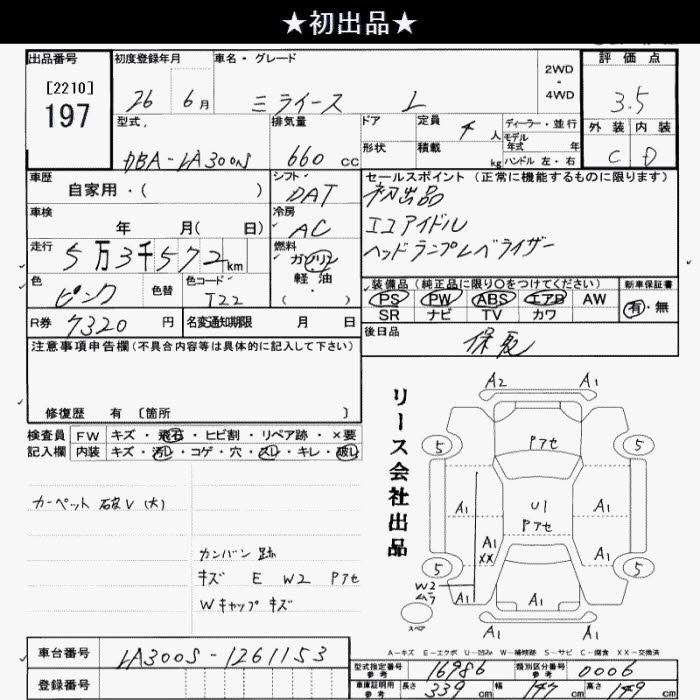 ★初出品★
出品番号 初度登録年月 車名・グレード 2WD・4WD 評価点
[2210]
197
26 6月 ミライース L 3.5
型式 排気量 ドア 定員 4人 ディーラー・並行 外装 内装
モデル年式 年
DBA-LA300S 660cc 形状 積載 kg ハンドル 左・右 C D
車歴 シフト セールスポイント (正常に機能するものに限ります)
自家用・( ) DAT 初出品
車検 冷房 エコアイドル
年 月( 日) AC ヘッドランプレベライザー
走行 燃料
5万3千572km ガソリン
軽油
・( )
色 色替 色コード 装備品 (純正品に限り○をつけてください) 新車保証書
ピンク T22 PS PW ABS エアB AW 有・無
SR ナビ TV カワ
R券 7320円 名変通知期限 月 日 後日品
注意事項申告欄(不具合内容等は具体的に記入して下さい)
修復歴 有 [箇所 ]
検査員 FW キズ・飛石・ヒビ割・リペア跡・×要
記入欄 内装 キズ・汚レ・コゲ・穴・スレ・キレ・破レ
リース会社出品
A2 A1
5 Pアセ 5
A1 U1 A1
Pアセ
A1 A1
XX
5 5
W2
ムラ A1 A1 A1
スペア A1 A1
カーペット 破レ (大)
カンバン跡
キズ E W2 Pアセ
Wキャップキズ
A-キズ E-エクボ U-凹み W-補修跡 S-サビ C-腐食 XX-交換済
車台番号 LA300S-1261153
登録番号
型式指定番号 参考 16986 類別区分番号 参考 0006
車庫証明用 参考 長さ 339cm 幅 147cm 高さ 149cm